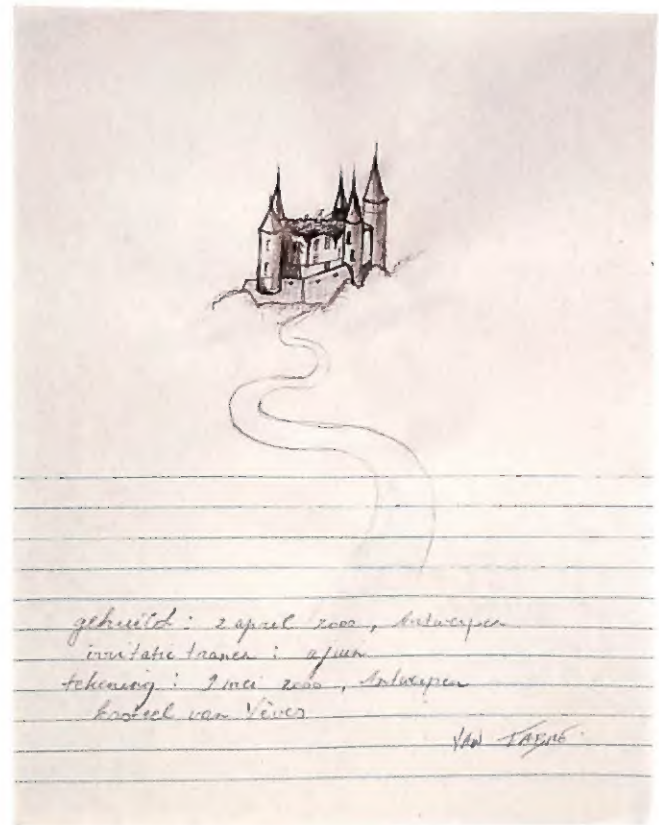 gehuild : 2 april 2000, Antwerpen
irritatie tranen : ajuin
tekening : 9 mei 2000, Antwerpen
kasteel van Vêves
VAN